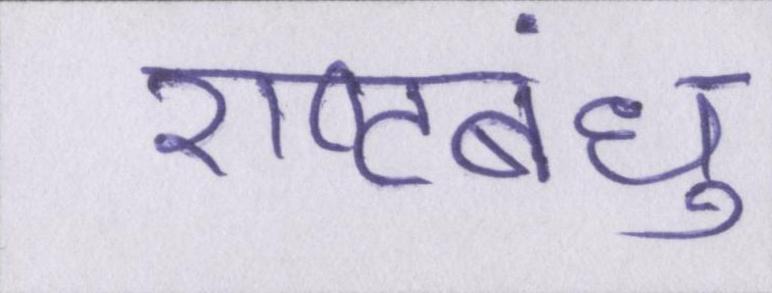 राष्टबंधु